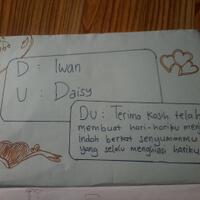 D : Iwan
U : Daisy
DU : Terima kasih telah
membuat hari-hariku men
indah berkat senyumanmu
yang selalu menghiasi hariku